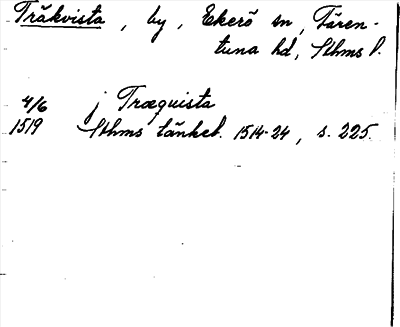 Träkvista, by, Ekerö sn, Fären-
tuna hd, Sthms l.
4/6 j Træquista
1519 Sthms tänkeb. 1514-24, s. 225.